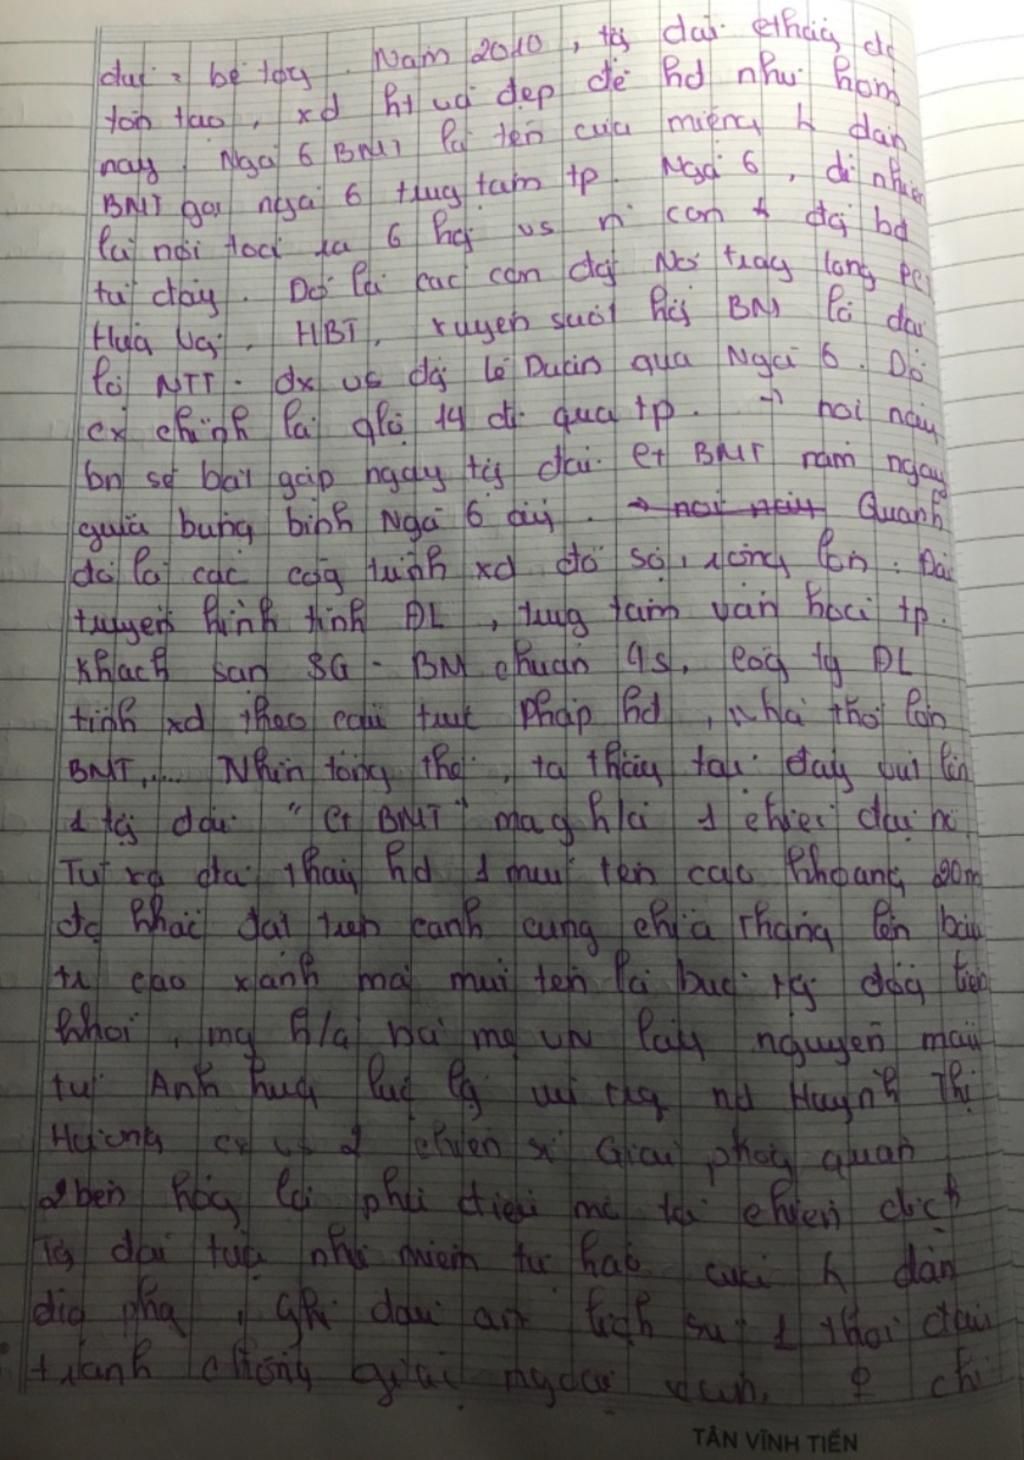 dựs = bê tôg. Năm 2010, tg đài chiến đc
tôn tạo, xd kt và đẹp đẽ hđ như hôm
nay. Ngã 6 BMT là tên của miệng h dân
BMT gọi ngã 6 trug tâm tp. Ngã 6, dĩ nhiên
là nơi toả ra 6 hg vs n~ con đg bđ
từ đây. Đó là các con đg Nơ trag long
HBT, xuyên suốt BM là đại
lộ NTT. đx vs đg Lê Duẩn qua Ngã 6. Đó
cx chính là qlộ 14 đi qua tp. nơi này
bn sẽ bắt gặp ngay tg đài ct BMT nằm ngay
giữa bùng binh Ngã 6 ấy. Quanh
đó là các côg trình xd đồ sộ, rộng lớn. Đài
truyền hình tỉnh ĐL, trug tâm văn hoá tp.
Khách sạn SG - BM chuẩn 4s, côg ty ĐL
tỉnh xd theo cấu trúc Pháp hđ, nhà thờ lớn
BMT,.... Nhìn tổng thể, ta thấy tại đây vút lên
1 tg đài "ct BMT" mag h/a 1 chiếc đại
Từ xa đã thấy hđ 1 mũi tên cao khoảng 20m
đc khắc đặt trên cánh cung chĩa thẳng lên bầu
tr cao xanh mà mũi tên là bức tg đồg liền
khối, mg h/a bà mẹ VN lấy nguyên mẫu
từ Anh hùg lực lg vũ trg nd Huỳnh Thị
Hường cx vs 2 chiến sĩ Giải phóg quân
2 bên hôg là phù điêu mô tả chiến dịch
Tg đài tựa như niềm tự hào của h dân
địa phg, ghi dấu ấn lịch sử 1 thời đấu
tranh chống giặc ngoại xâm. chỉ
TÂN VĨNH TIẾN